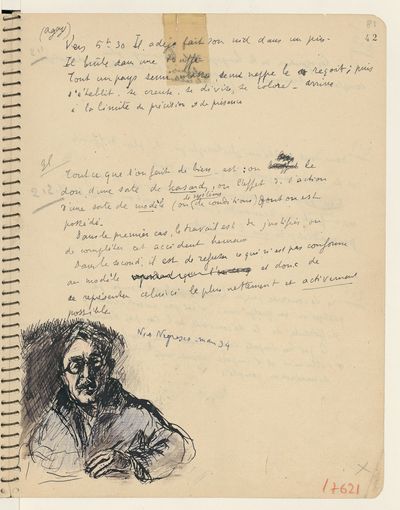 (agay)
81
42
Vers 5h30 Il a déjà fait son nid dans un pin.
Il brûle dans une
Tout un pays semé sur une nappe le reçoit ; puis
s'établit, se creuse, se divise, se colore - arrive
à la limite de précision et de présence
Tout ce que l'on fait de bien est : ou le
don d'une sorte de hasard, ou l'effet de l'action
d'une sorte de modèle (ou de conditions) dont on est
possédé.
Dans le premier cas, le travail est de justifier, ou
de compléter cet accident heureux
Dans le second, il est de refuser ce qui n'est pas conforme
au modèle et donc de
se représenter celui-ci le plus nettement et activement
possible
mars 34
17621